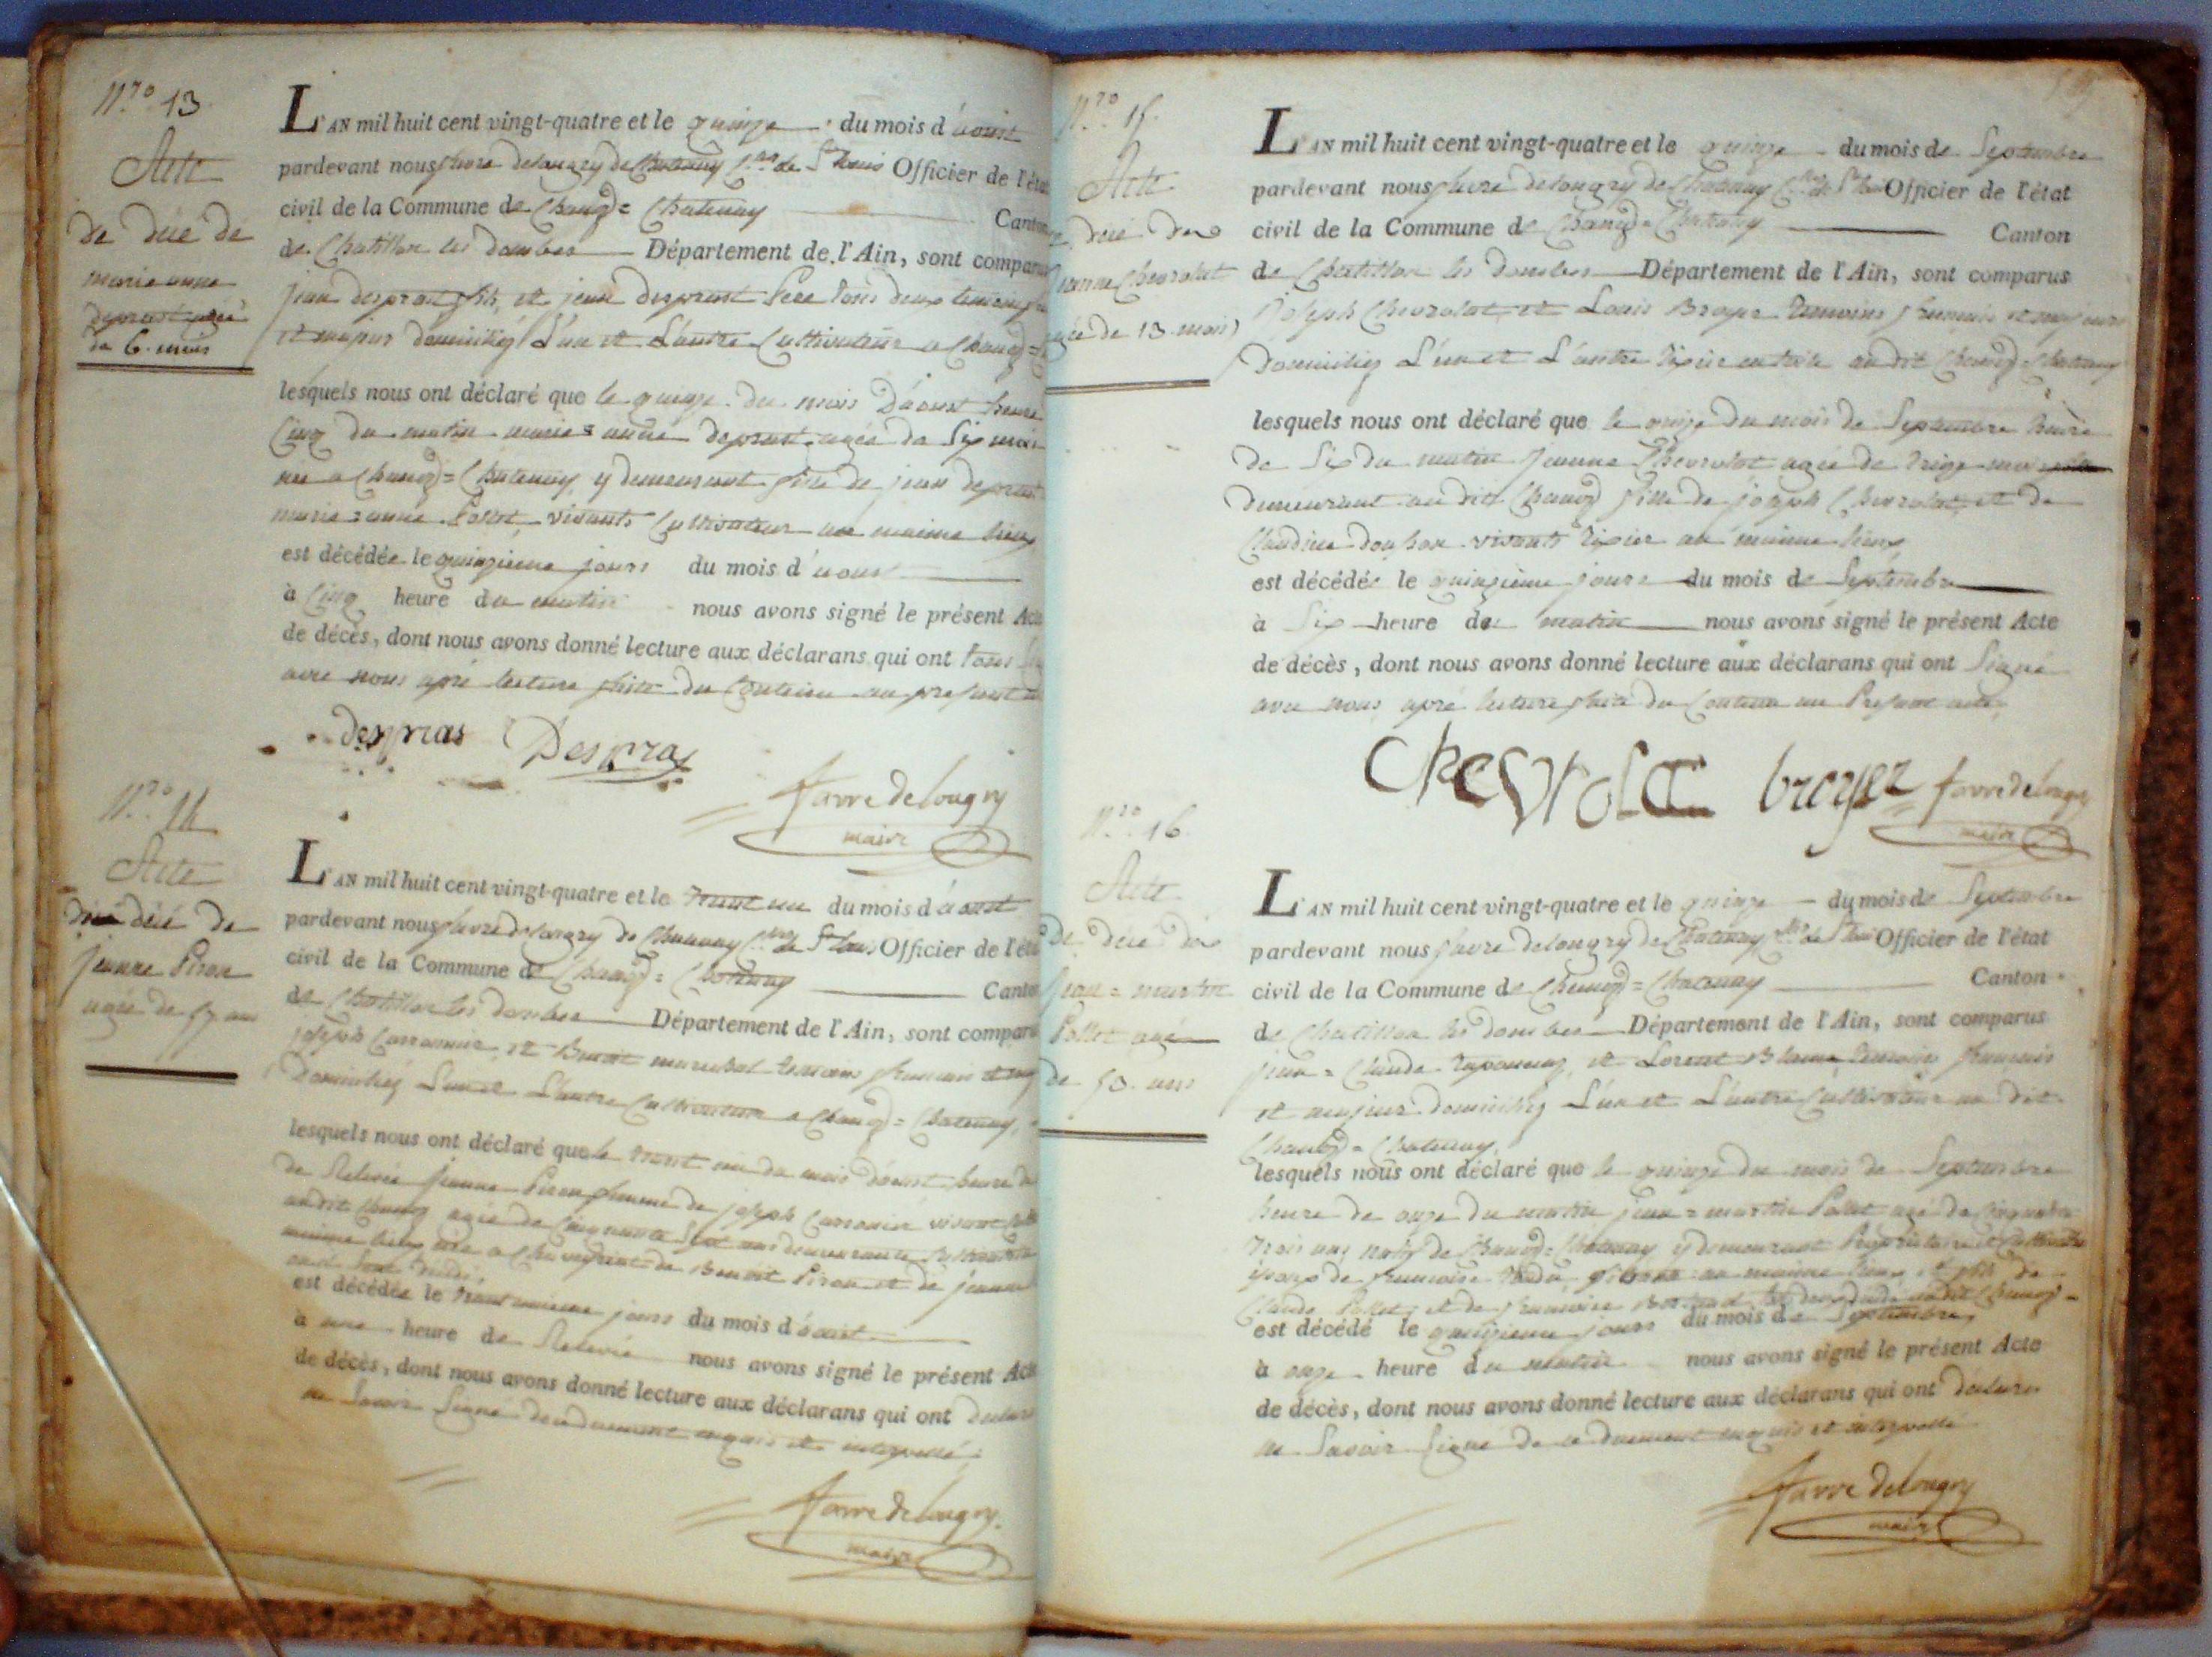 N.ro 13
Acte
de décé de
marie anne
deprast agée
de 6. mois
L'AN mil huit cent vingt-quatre et le quinze du mois d'aoust
pardevant nous favre delongry de Chatenay Officier de l'état
civil de la Commune de Chanoz = Chatenay Canton
de Chatillon les dombes Département de l'Ain, sont comparus
jean desprast fils, et jean desprast Pere tous deux temoins
et majeur domiciliéz L'un et L'autre Cultivateur a Chanoz =
lesquels nous ont déclaré que le quinze du mois D'aoust heure
Cinq du matin marie = anne deprast agée de Six mois
née a Chanoz = Chatenay y demeurant fille de jean deprast
marie = anne Pollet vivants Cultivateur au maime lieux
est décédée le quinzieme jours du mois d'aoust
à Cinq heure du matin nous avons signé le présent Acte
de décès, dont nous avons donné lecture aux déclarans qui ont tous
avec nous apré lecture faite du Contenu au present
despras Despras
favre delongry
maire
N.ro 14
Acte
décé de
jeanne Piron
agée de 57 ans
L'AN mil huit cent vingt-quatre et le trent un du mois d'aoust
pardevant nous favre delongry de Chatenay Officier de l'état
civil de la Commune de Chanoz = Chatenay Canton
de Chatillon les dombes Département de l'Ain, sont comparus
joseph et Benoit marechal temoins francais et
Domiciliéz L'un et L'autre Cultivateur a Chanoz = Chatenay,
lesquels nous ont déclaré que le trent un du mois d'aoust heure
de Relevée jeanne Piron femme de joseph vivant
audit Chanoz agée de Cinquante Sept ans demeurante
maime lieu née a de Benoit Piron et de jeanne
est décédée le trent unieme jours du mois d'aoust
à une heure de Relevée nous avons signé le présent Acte
de décès, dont nous avons donné lecture aux déclarans qui ont declaré
ne Savoir Signé de ce duement enquis et interpellé
favre delongry
maire
N.ro 15.
Acte
de décé de
jeanne Chevrolat
agée de 13 mois
L'AN mil huit cent vingt-quatre et le quinze du mois de Septembre
pardevant nous favre delongry de Chatenay Officier de l'état
civil de la Commune de Chanoz = Chatenay Canton
de Chatillon les dombes Département de l'Ain, sont comparus
joseph Chevrolat et Louis Broyer temoins francais et majeurs
Domiciliéz L'un et L'autre tixier en toile audit Chanoz = Chatenay
lesquels nous ont déclaré que le quinze du mois de Septembre heure
de Six du matin jeanne Chevrolat agée de treize mois
demeurant audit Chanoz fille de joseph Chevrolat et de
Claudine vivants tixier au maime lieux
est décédée le quinzieme jours du mois de Septembre
à Six heure du matin nous avons signé le présent Acte
de décès, dont nous avons donné lecture aux déclarans qui ont Signé
avec nous apré lecture faite du Contenu au Present acte
Chevrolat broyer favre delongry
maire
N.ro 16
Acte
de décé de
jean = martin
Pollet agé
de 53. ans
L'AN mil huit cent vingt-quatre et le quinze du mois de Septembre
pardevant nous favre delongry de Chatenay Officier de l'état
civil de la Commune de Chanoz = Chatenay Canton
de Chatillon les dombes Département de l'Ain, sont comparus
jean = Claude et Lorent temoins francais
et majeur domiciliéz L'un et L'autre Cultivateur au dit
Chanoz = Chatenay,
lesquels nous ont déclaré que le quinze du mois de Septembre
heure de onze du matin jean = martin Pollet agé de Cinquante
trois ans natif de Chanoz = Chatenay y demeurant Proprietaire
epoux de francoise au maime lieux et fils de
Claude Pollet et de francoise
est décédé le quinzieme jours du mois de Septembre
à onze heure du matin nous avons signé le présent Acte
de décès, dont nous avons donné lecture aux déclarans qui ont declaré
ne Savoir Signé de ce duement enquis et interpellé
favre delongry
maire